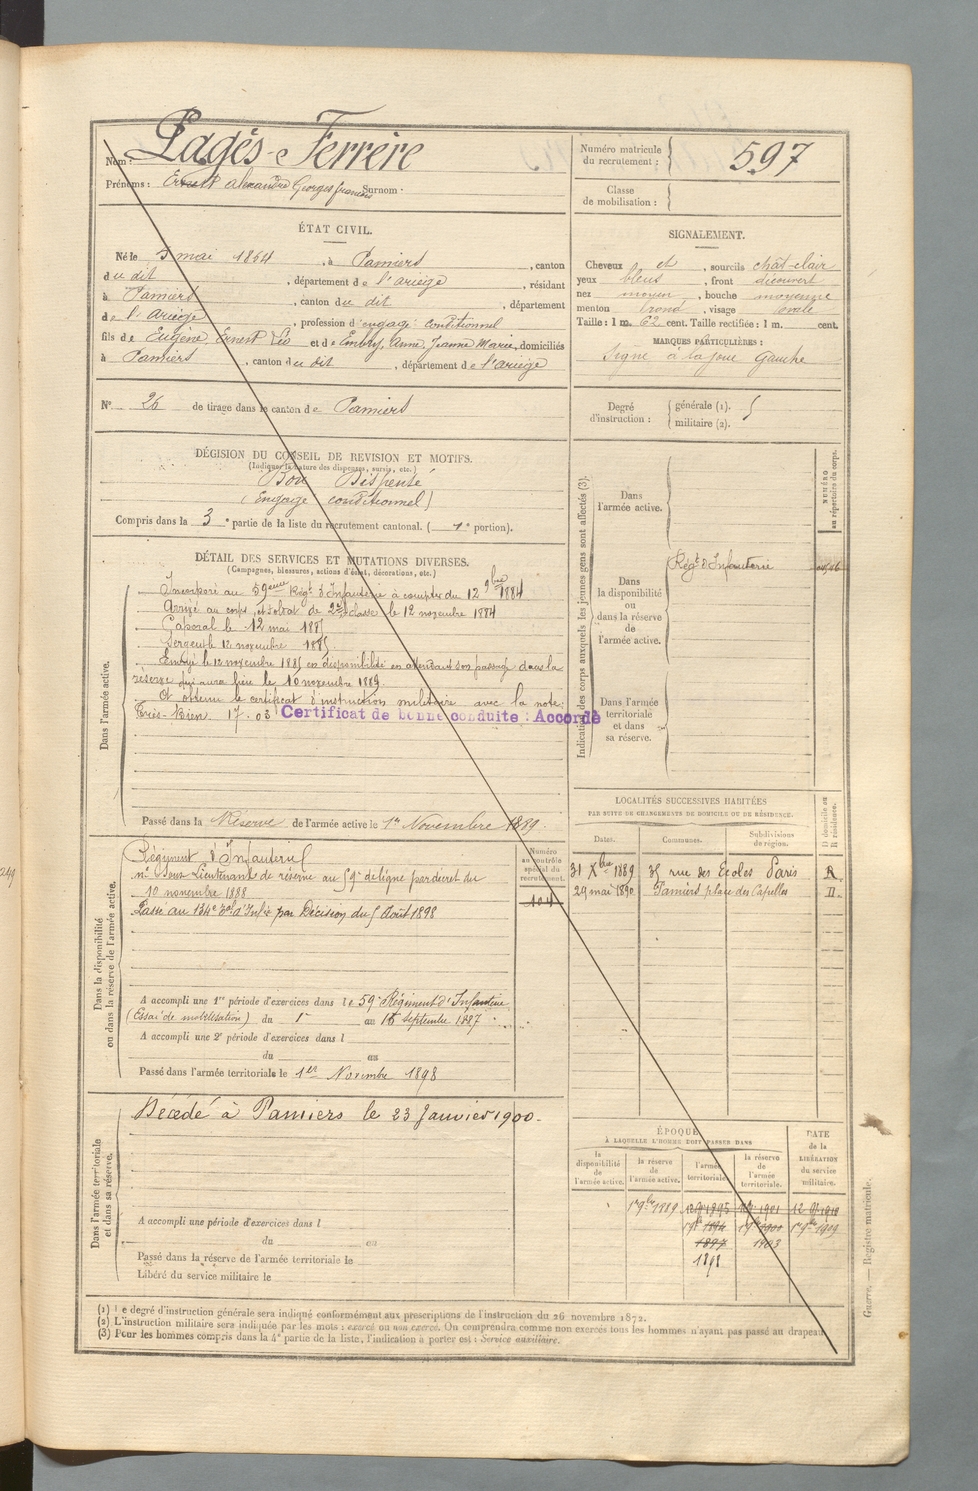 Nom : Pagès-Ferrère
Prénoms : Ernest Alexandre Georges françois Surnom :
ÉTAT CIVIL.
Né le 5 mai 1864, à Pamiers, canton
du dit, département de l'ariège, résidant
à Pamiers, canton du dit, département
de l'ariège, profession d'engagé conditionnel
fils de Eugène, Ernest Léo et de Embry, Anne, Jeanne Marie, domiciliés
à Pamiers, canton du dit, département de l'ariège
N° 26 de tirage dans le canton de Pamiers
DÉCISION DU CONSEIL DE REVISION ET MOTIFS.
(Indiquer la nature des dispenses, sursis, etc.)
Bon Dispensé
(Engagé conditionnel)
Compris dans la 3e partie de la liste du recrutement cantonal. ( 1e portion).
DÉTAIL DES SERVICES ET MUTATIONS DIVERSES.
(Campagnes, blessures, actions d'éclat, décorations, etc.)
Dans l'armée active.
Incorporé au 59eme Régt d'Infanterie à compter du 12 9bre 1884
Arrivé au corps, et soldat de 2e classe le 12 novembre 1884
Caporal le 12 mai 1885
Sergent le 12 novembre 1885
Envoyé le 12 novembre 1885 en disponibilité en attendant son passage dans la
réserve qui aura lieu le 10 novembre 1889.
A obtenu le certificat d'instruction militaire avec la note:
Très-Bien. 17.03
Certificat de bonne conduite : Accordé
Passé dans la Réserve de l'armée active le 1er Novembre 1889.
Dans la disponibilité
ou dans la réserve de l'armée active.
Numéro
au contrôle
spécial du
recrutement.
104
Régiment d'Infanterie
né Sous-Lieutenant de réserve au 59e de ligne par décret du
10 novembre 1888
Passé au 134e d'Infie par Décision du 5 Août 1898
A accompli une 1re période d'exercices dans le 59e Régiment d'Infanterie
(Essai de mobilisation) du 1er au 15 septembre 1887
A accompli une 2e période d'exercices dans l
du au
Passé dans l'armée territoriale le 1er Novembre 1898
Dans l'armée territoriale
et dans sa réserve.
Décédé à Pamiers le 23 Janvier 1900.
A accompli une période d'exercices dans l
du au
Passé dans la réserve de l'armée territoriale le
Libéré du service militaire le
Numéro matricule
du recrutement : 597
Classe
de mobilisation :
SIGNALEMENT.
Cheveux et, sourcils chât-clair
yeux bleus, front découvert
nez moyen, bouche moyenne
menton rond, visage ovale
Taille : 1 m. 62 cent. Taille rectifiée : 1 m. cent.
MARQUES PARTICULIÈRES :
Signe à la joue Gauche
Degré
d'instruction :
générale (1).
militaire (2).
Indication des corps auxquels les jeunes gens sont affectés (3).
NUMÉRO
au répertoire du corps.
Dans
l'armée active.
Dans
la disponibilité
ou
dans la réserve
de
l'armée active.
Régt d'Infanterie
Dans l'armée
territoriale
et dans
sa réserve.
LOCALITÉS SUCCESSIVES HABITÉES
PAR SUITE DE CHANGEMENTS DE DOMICILE OU DE RÉSIDENCE.
Dates.
Communes.
Subdivisions
de région.
D domicile ou
R résidence.
31 Xbre 1889 35 rue des Ecoles Paris R
29 mai 1890 Pamiers place des Capelles D
ÉPOQUE
À LAQUELLE L'HOMME DOIT PASSER DANS
la
disponibilité
de
l'armée active.
la réserve
de
l'armée active.
l'armée
territoriale.
la réserve
de
l'armée
territoriale.
DATE
de la
LIBÉRATION
du service
militaire.
1er 9bre 1889
1894
1897
1898
1900
1903
1er 9bre 1909
(1) Le degré d'instruction générale sera indiqué conformément aux prescriptions de l'instruction du 26 novembre 1872.
(2) L'instruction militaire sera indiquée par les mots : exercé ou non exercé. On comprendra comme non exercés tous les hommes n'ayant pas passé au drapeau.
(3) Pour les hommes compris dans la 4e partie de la liste, l'indication à porter est : Service auxiliaire.
Guerre. — Registre matricule.
249